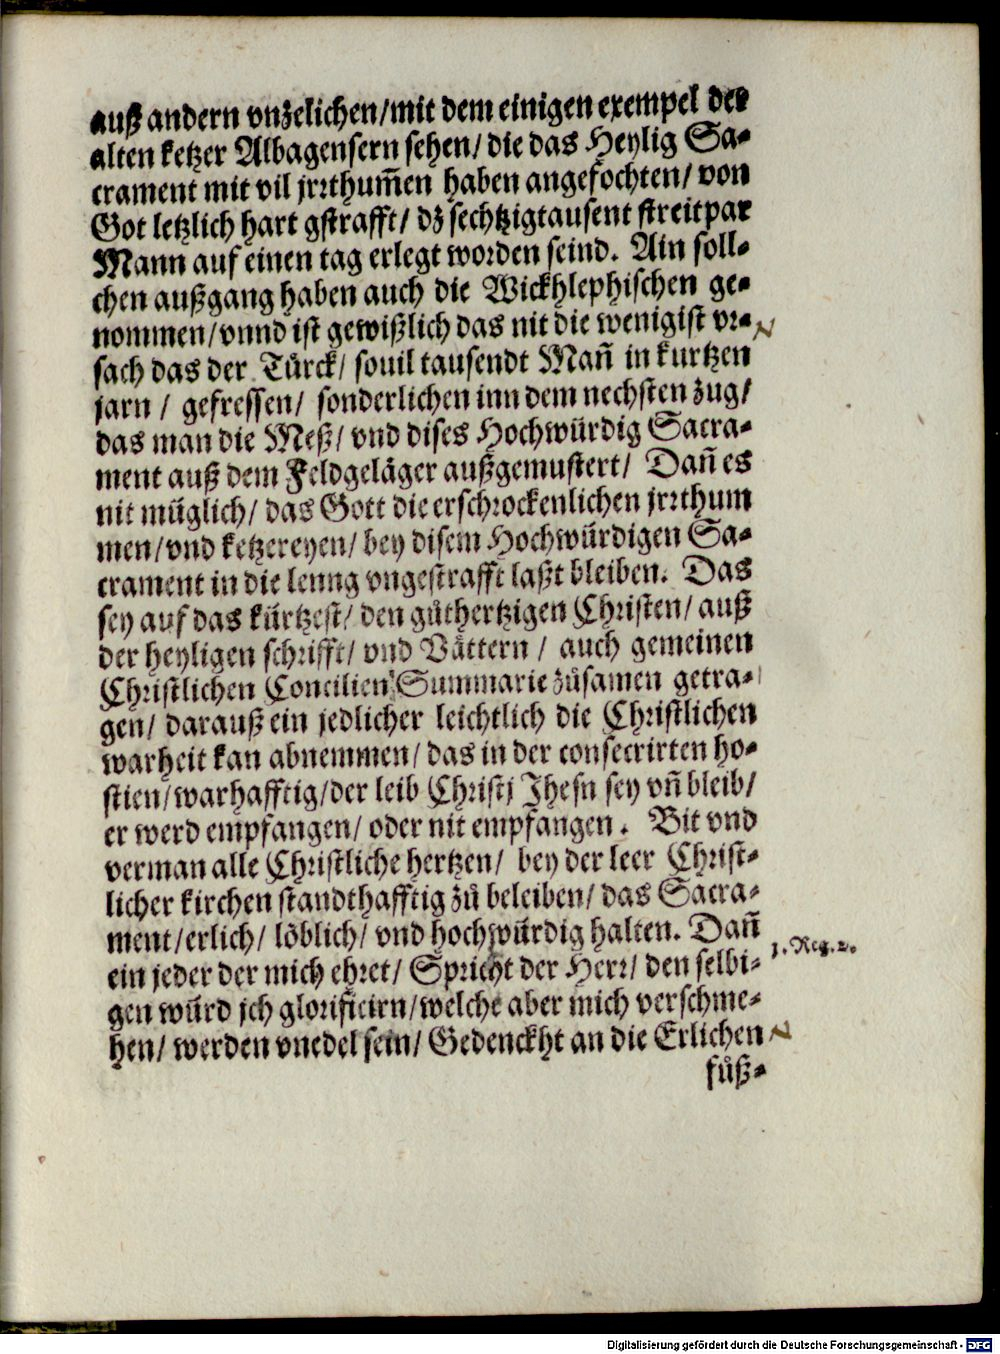 auß andern vnzelichen/mit dem einigen exempel der
alten ketzer Albagensern sehen/ die das Heylig Sa-
crament mit vil jrrthum̃en haben angefochten/ von
Got letzlich hart gstrafft/ dz sechtzigtausent streitpar
Mann auf einen tag erlegt worden seind. Ain soll-
chen außgang haben auch die Wickhlephischen ge-
nommen/vnnd ist gewißlich das nit die wenigist vr-
sach das der Türck/ souil tausendt Mañ in kurtzen
jarn / gefressen/ sonderlichen inn dem nechsten zug/
das man die Meß/ vnd dises Hochwürdig Sacra-
ment auß dem Feldgeläger außgemustert/ Dañ es
nit müglich/ das Gott die erschrockenlichen jrrthum
men/vnd ketzereyen/ bey disem Hochwürdigen Sa-
crament in die lenng vngestrafft laßt bleiben. Das
sey auf das kürtzest/ den gůthertzigen Christen/ auß
der heyligen schrifft/ vnd Vättern / auch gemeinen
Christlichen Concilien Summarie zůsamen getra-
gen/ darauß ein jedlicher leichtlich die Christlichen
warheit kan abnemmen/ das in der consecrirten ho-
stien/warhafftig/der leib Christj Jhesu sey vñ bleib/
er werd empfangen/ oder nit empfangen. Bit vnd
verman alle Christliche hertzen/ bey der leer Christ-
licher kirchen standthafftig zů beleiben/ das Sacra-
ment/erlich/ löblich/ vnd hochwürdig halten. Dañ
1. Reg. 2.
ein jeder der mich ehret/ Spricht der Herr/ den selbi-
gen würd jch glorificirn/welche aber mich verschme-
hen/ werden vnedel sein/ Gedenckht an die Erlichen
fůß-
Digitalisierung gefördert durch die Deutsche Forschungsgemeinschaft - DFG